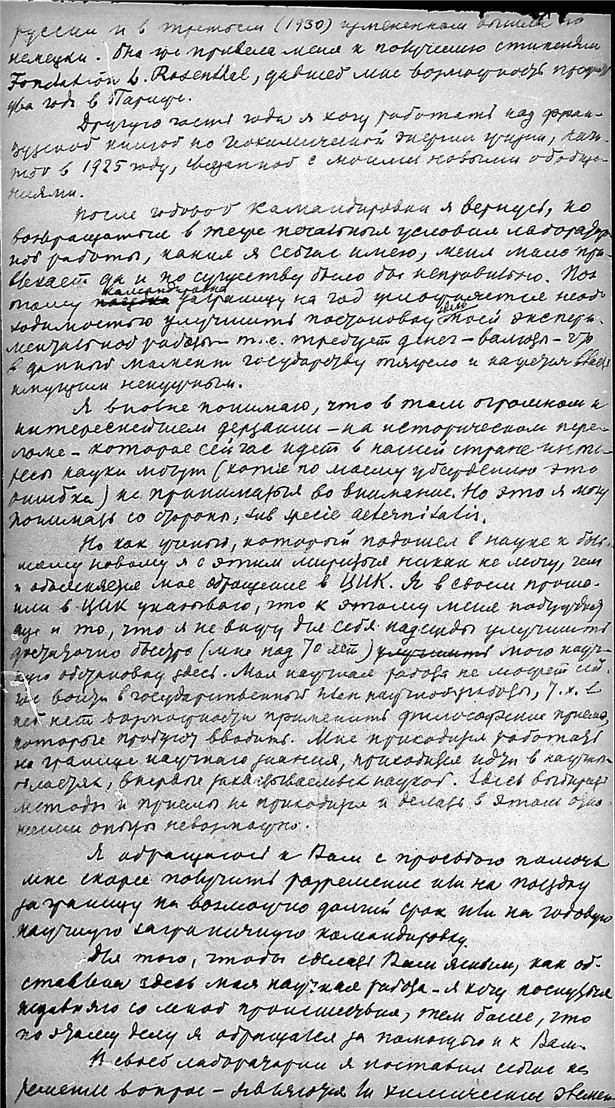 русски и в третьем (1930) измененном вышли по
немецки. Она же привела меня к получению стипендии
Fondation L. Rosenthal, давшей мне возможность провести
два года в Париже.
Другую часть года я хочу работать над фран-
цузской книгой по геохимической энергии жизни, начатой
в 1925 году, связанной с моими новыми обобще-
ниями.
После годовой командировки я вернусь, но
возвращаться в те же печальные условия лаборатор-
ной работы, какие я сейчас имею, меня мало при-
влекает да и по существу было бы неправильно. Поэ-
тому командировка заграницу на год осложняется необ-
ходимостью улучшить постановку моей экспери-
ментальной работы – т.е. требует денег – валюты – что
в данный момент государству тяжело и кажется
ненужным.
Я вполне понимаю, что в том огромном и
интереснейшем дерзании – на историческом пере-
ломе – которое сейчас идет в нашей стране инте-
ресы науки могут (хотя по моему убеждению это
ошибка) не приниматься во внимание. Но это я могу
понимать со стороны, sub specie aeternitatis.
Но как ученый, который подошел в науке к боль-
шому новому я с этим мириться никак не могу, чем
и объясняется мое обращение в ЦИК. Я в своем проше-
нии в ЦИК указываю, что к этому меня побуждает
еще и то, что я не вижу для себя надежды улучшить
достаточно быстро (мне под 70 лет) улучшить мою науч-
ную обстановку здесь. Моя научная работа не может сей-
час войти в государственный план научной работы, т.к. в
ней нет возможности применить философские приемы,
которые пробуют вводить. Мне приходится работать
на границе научного знания, приходится идти в научных
областях, впервые захватываемых наукой. Здесь выбирать
методы и приемы не приходится и делать в этом отно-
шении опыты невозможно.
Я обращаюсь к Вам с просьбою помочь
мне скорее получить разрешение или на поездку
за границу на возможно долгий срок или на годовую
научную заграничную командировку.
Для того, чтобы сделать Вам ясным, как об-
ставлена здесь моя научная работа – я хочу коснуться
недавнего со мной происшествия, тем более, что
по этому делу я обращался за помощью и к Вам.
В своей лаборатории я поставил сейчас на
решение вопрос – являются ли химические элемен-